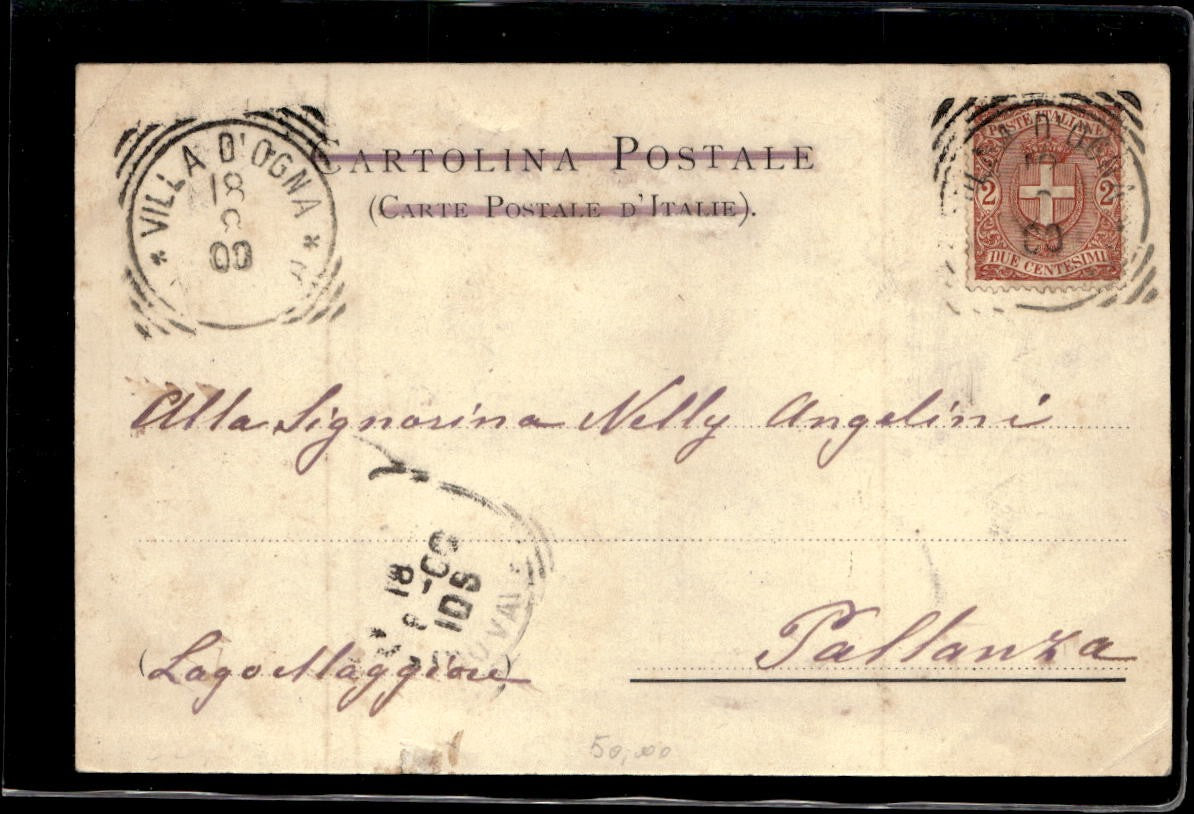 CARTOLINA POSTALE
(CARTE POSTALE D'ITALIE).
* VILLA D'OGNA *
18
8
00
POSTE ITALIANE
2 2
DUE CENTESIMI
VILLA D'OGNA
18
8
00
Alla Signorina Nelly Angelini
18
8-00
10S
Pallanza
(Lago Maggiore)
50,00